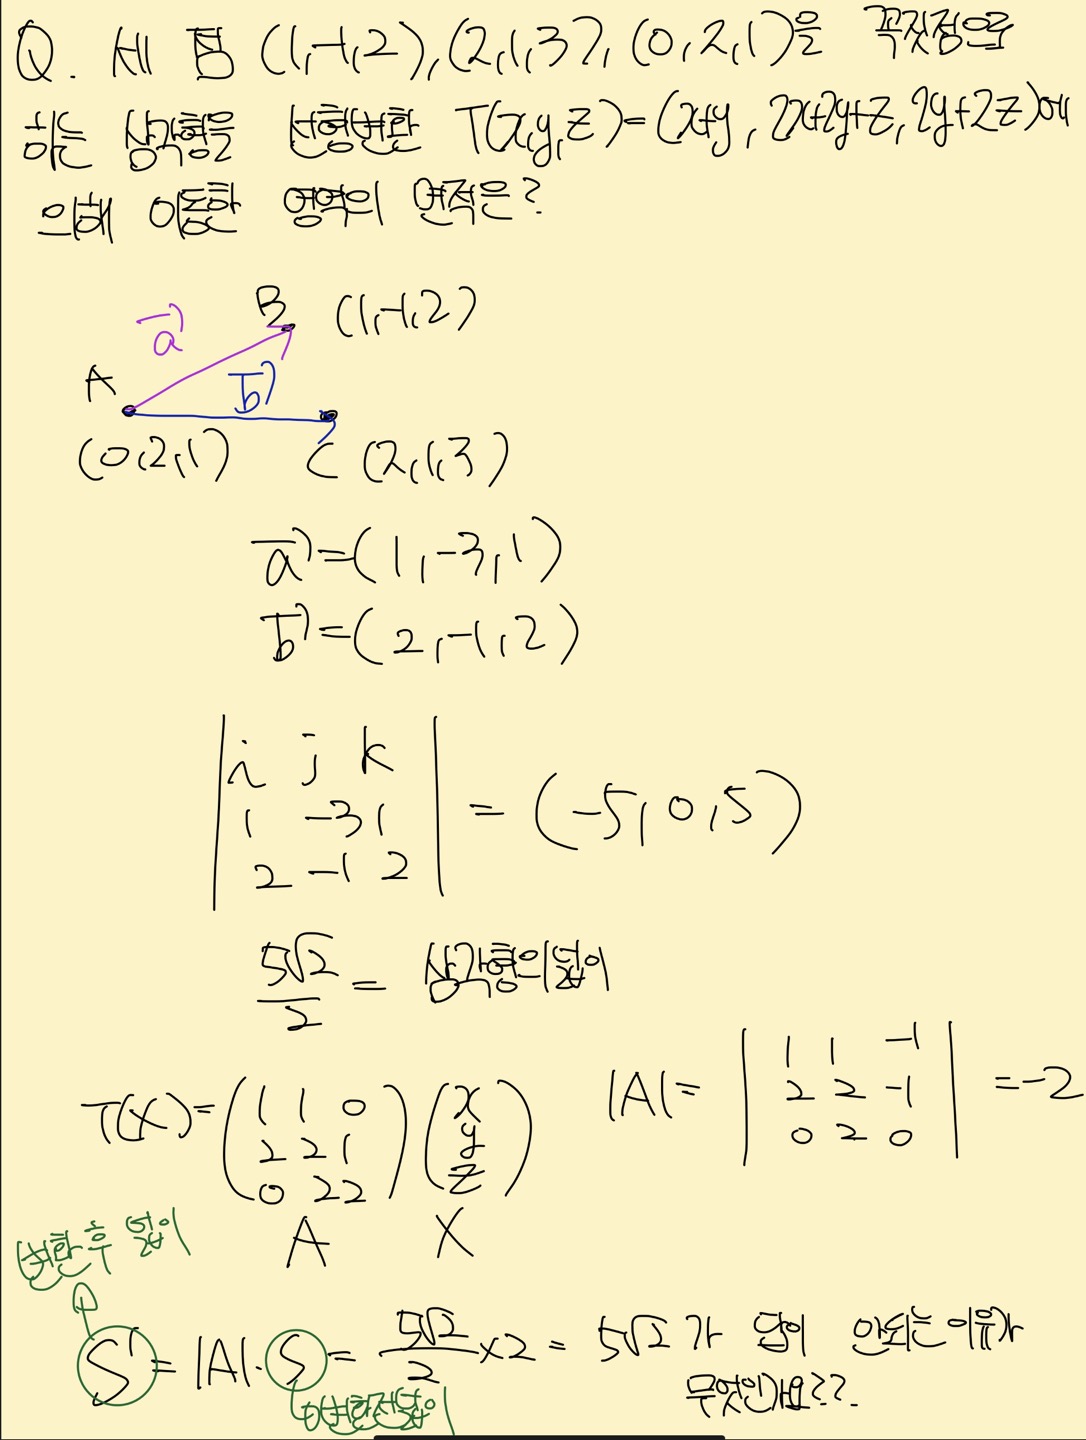 Q. 세 점 (1,-1,2), (2,1,3), (0,2,1)을 꼭짓점으로
하는 삼각형을 선형변환 T(x,y,z)=(x+y, 2x+2y+z, 2y+2z)에
의해 이동한 영역의 면적은?
B (1,-1,2)
a→
A
b→
(0,2,1) C (2,1,3)
a→=(1,-3,1)
b→=(2,-1,2)
| i j k |
| 1 -3 1 | = (-5,0,5)
| 2 -1 2 |
5√2/2 = 삼각형의 넓이
T(X)=(1 1 0 / 2 2 1 / 0 2 2)(x / y / z) |A|=|1 1 -1 / 2 2 -1 / 0 2 0| =-2
A X
변환후 넓이
S' = |A|·S = 5√2/2 ×2 = 5√2 가 답이 안되는 이유가
무엇인가요??
변환전넓이